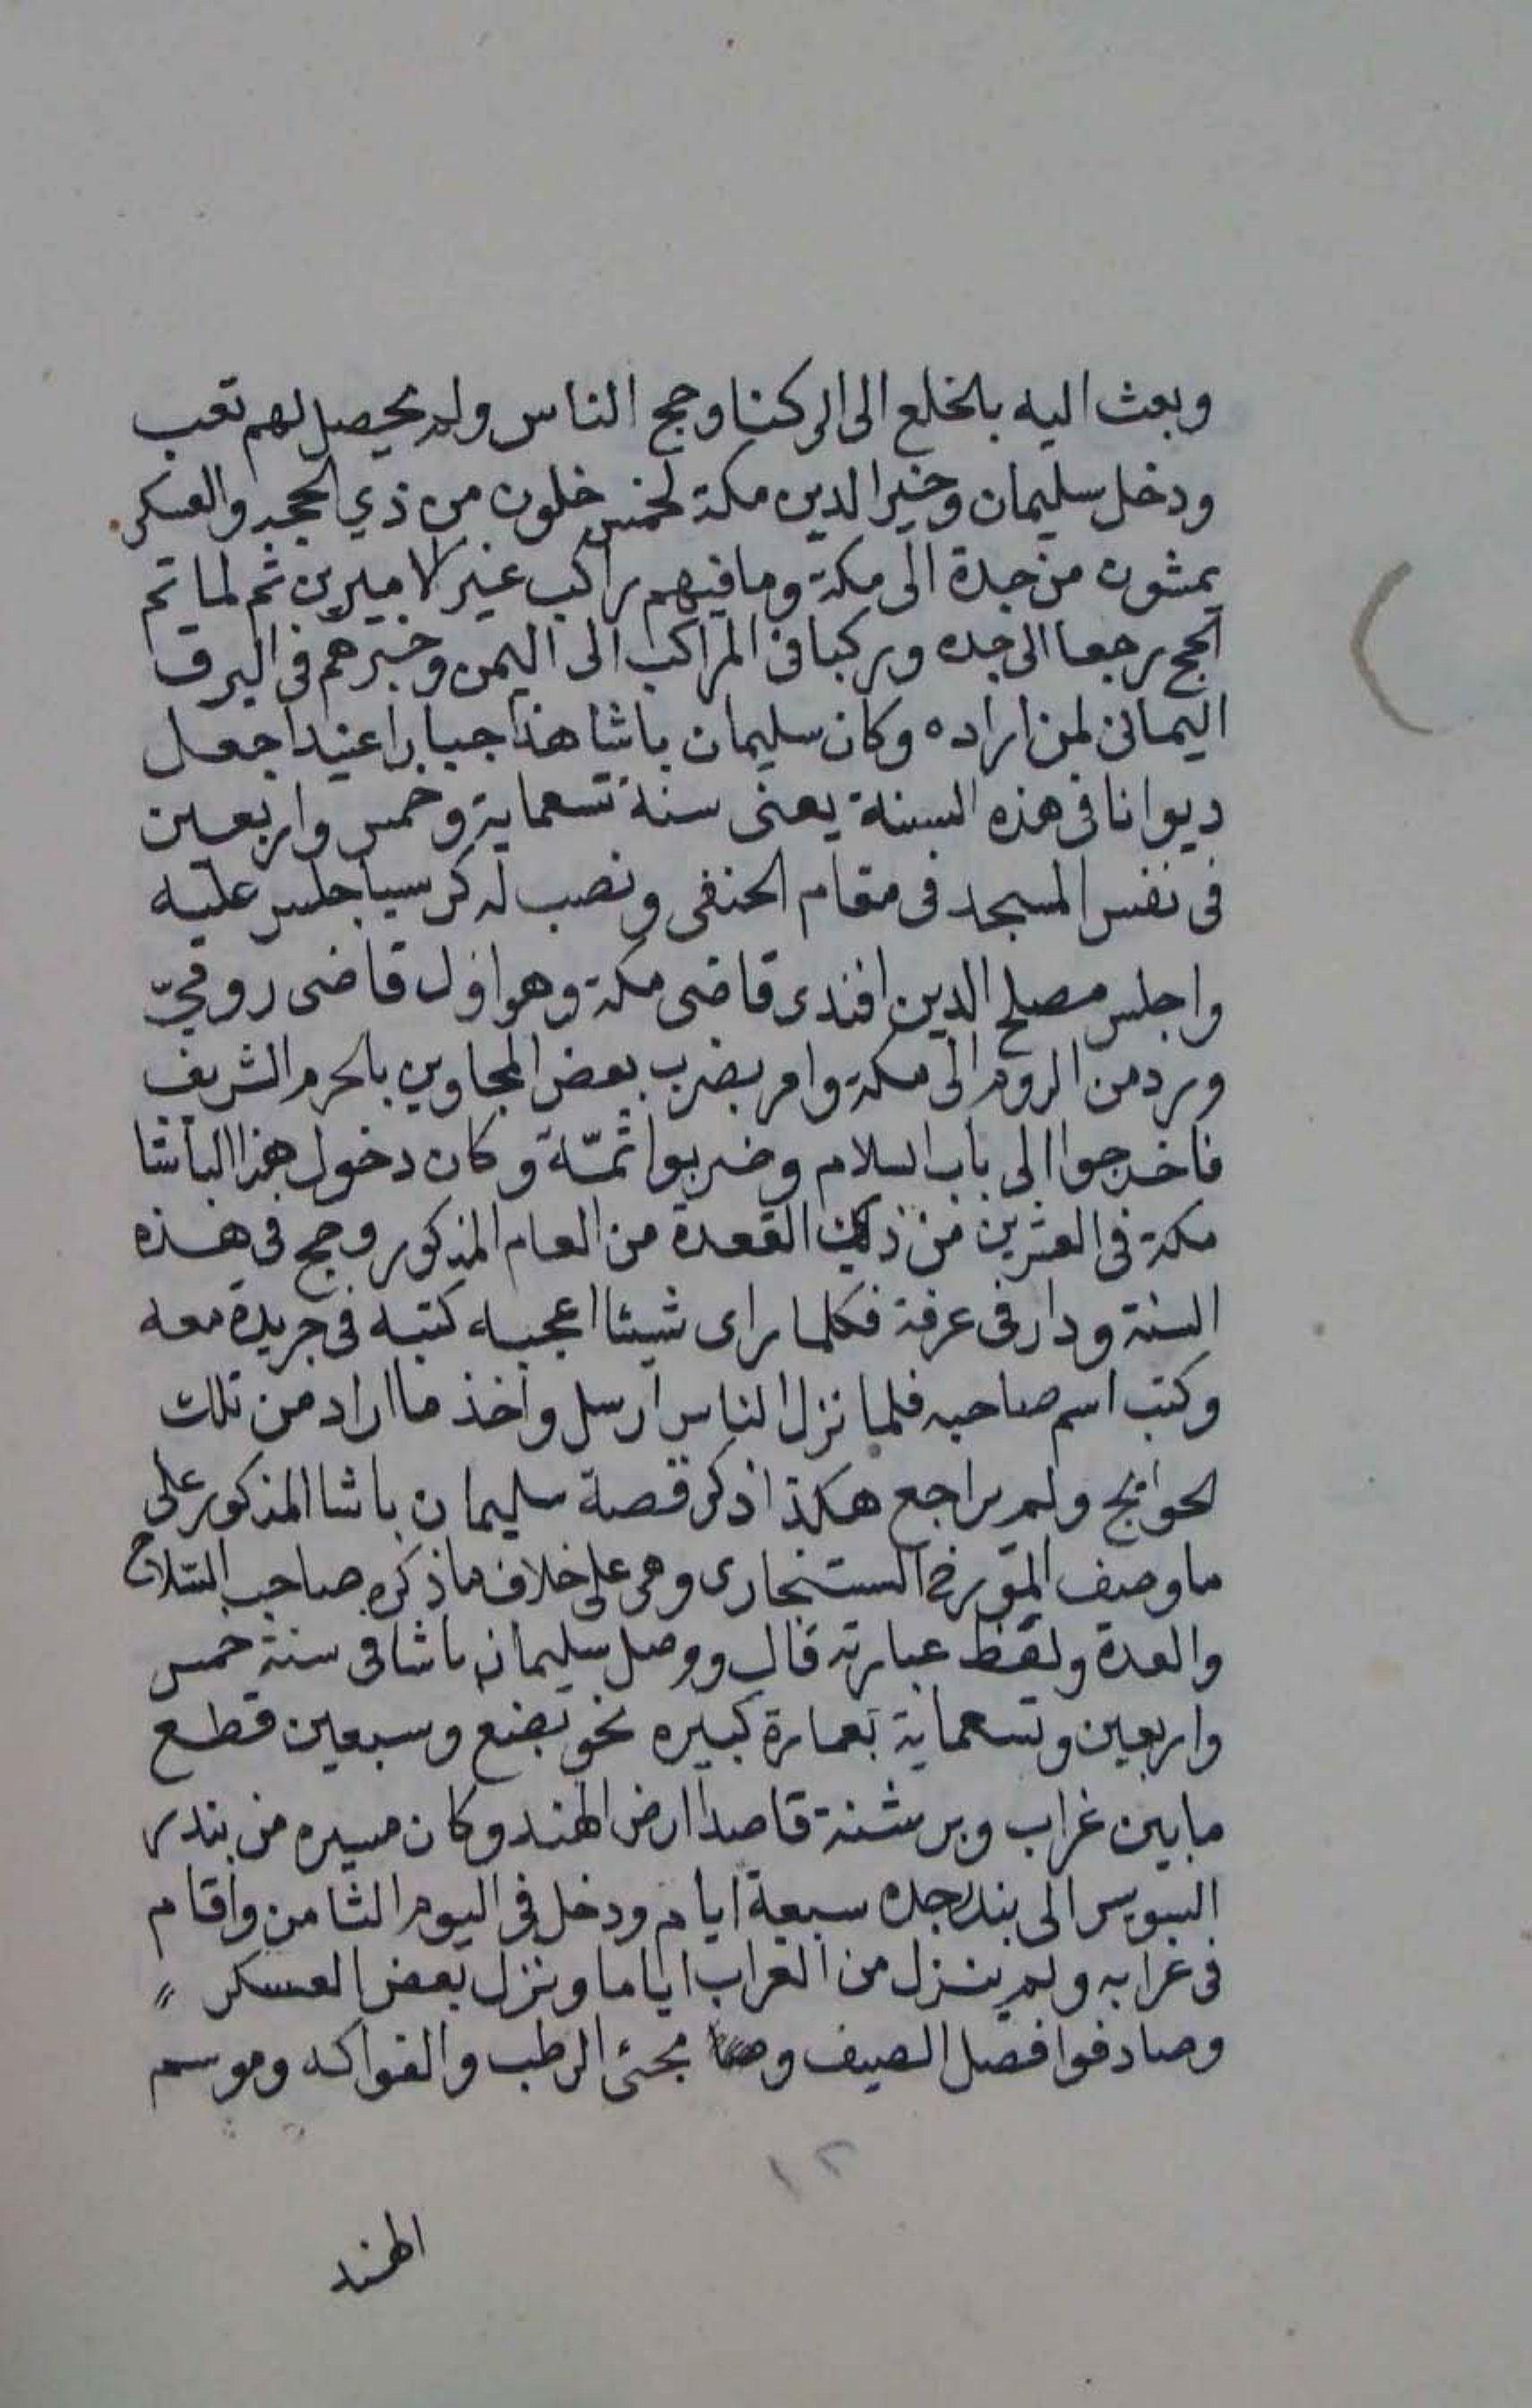 وبعث اليه بالخلع الى الركنا وحج الناس ولم يحصل لهم تعب
ودخل سليمان وخير الدين مكة لخمس خلون من ذي الحجه والعسكر
يمشون من جدة الى مكة وما فيهم راكب غير الاميرين ثم لما تم
الحج رجعا الى جده وركبا فى المراكب الى اليمن وخبرهم فى البرق
اليمانى لمن اراده وكان سليمان باشا هذا جبارا عنيدا جعل
ديوانا فى هذه السنة يعنى سنة تسعماية وخمس واربعين
فى نفس المسجد فى مقام الحنفى ونصب له كرسيا جلس عليه
واجلس مصلح الدين افندى قاضى مكة وهو اول قاضى رومىّ
ورد من الروم الى مكة وامر بضرب بعض المجاوين بالحرم الشريف
فاخرجوا الى باب السلام وضربوا ثمّة وكان دخول هذا الباشا
مكة فى العشرين من ذى القعدة من العام المذكور وحج فى هذه
السنة ودار فى عرفة فكلما راى شيئا اعجبه كتبه فى جريدة معه
وكتب اسم صاحبه فلما نزل الناس ارسل واخذ ما اراد من تلك
الحوايج ولم يراجع هكذا ذكر قصة سليمان باشا المذكور على
ما وصف المؤرخ السنجارى وهى على خلاف ما ذكره صاحب السّلاح
والعدة ولفظ عبارته قال ووصل سليمان باشا فى سنة خمس
واربعين وتسعماية بعمارة كبيره نحو بضع وسبعين قطع
ما بين غراب وبرشنة قاصدا ارض الهند وكان مسيره من بندر
السويس الى بندر جده سبعة ايام ودخل فى اليوم الثامن واقام
فى غرابه ولم ينزل من الغراب اياما ونزل بعض العسكر
وصادفوا فصل الصيف مجئ الرطب والفواكه وموسم
١٢
الهند